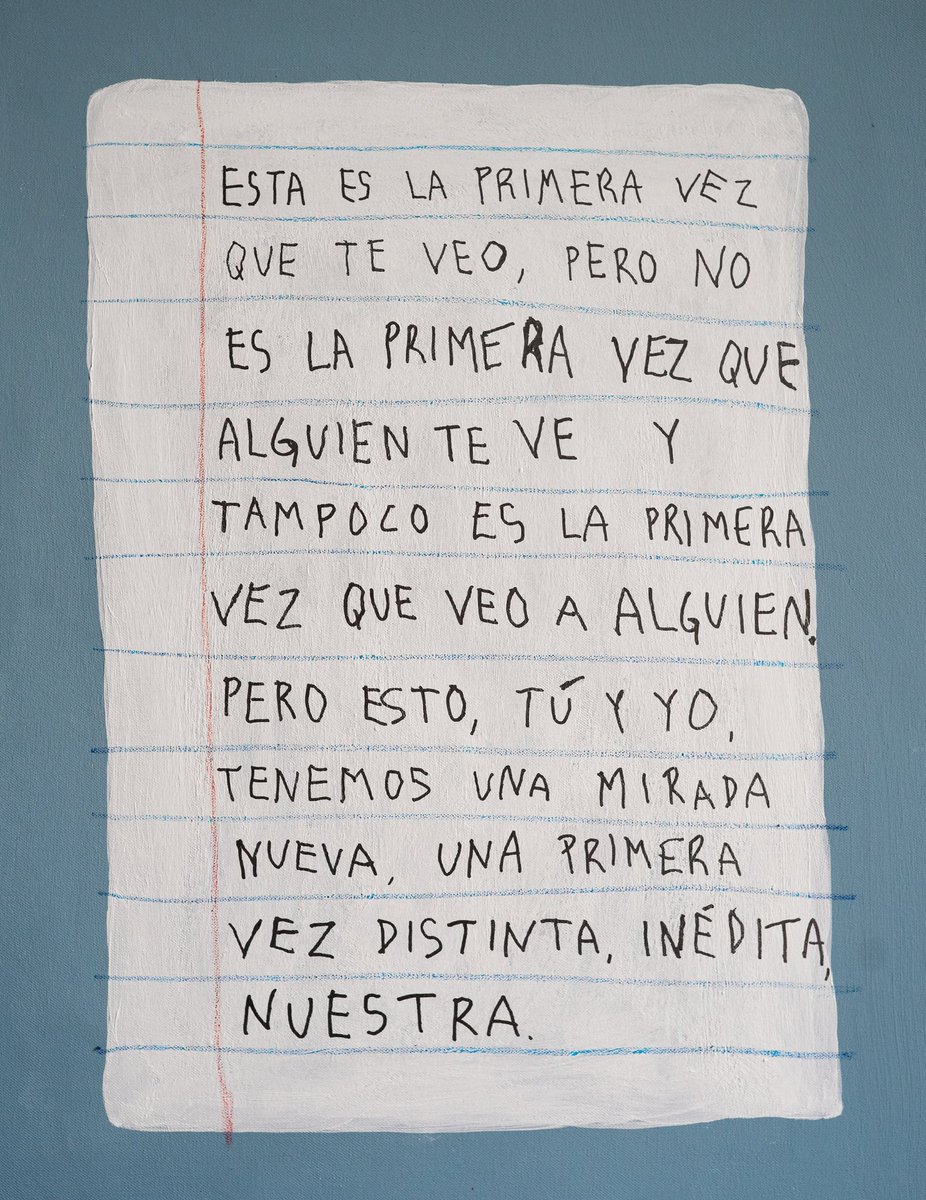 ESTA ES LA PRIMERA VEZ
QUE TE VEO, PERO NO
ES LA PRIMERA VEZ QUE
ALGUIEN TE VE Y
TAMPOCO ES LA PRIMERA
VEZ QUE VEO A ALGUIEN.
PERO ESTO, TÚ Y YO,
TENEMOS UNA MIRADA
NUEVA, UNA PRIMERA
VEZ DISTINTA, INÉDITA,
NUESTRA.